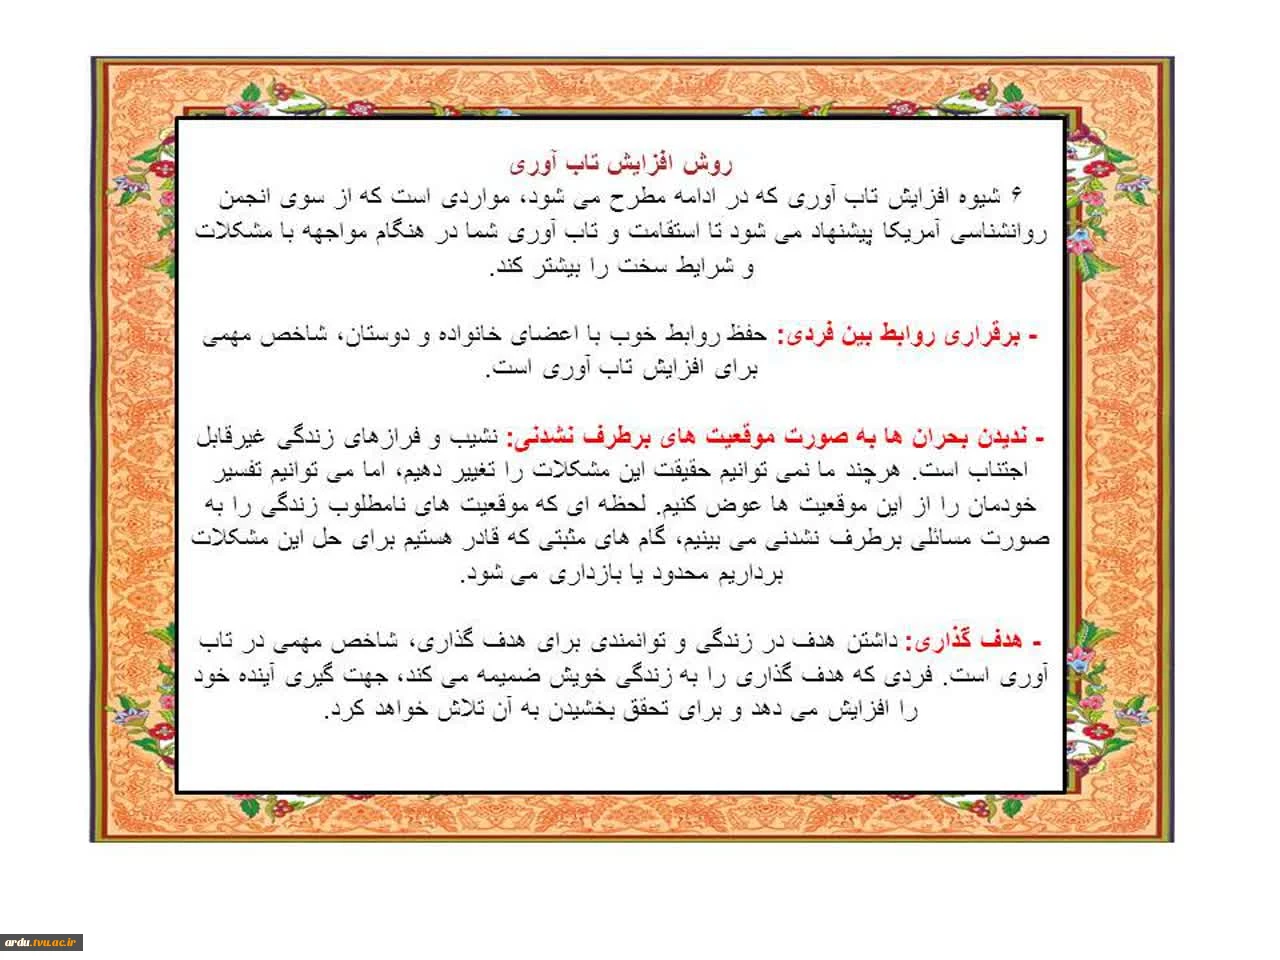 روش افزایش تاب آوری
۶ شیوه افزایش تاب آوری که در ادامه مطرح می شود، مواردی است که از سوی انجمن
روانشناسی آمریکا پیشنهاد می شود تا استقامت و تاب آوری شما در هنگام مواجهه با مشکلات
و شرایط سخت را بیشتر کند.
- برقراری روابط بین فردی: حفظ روابط خوب با اعضای خانواده و دوستان، شاخص مهمی
برای افزایش تاب آوری است.
- ندیدن بحران ها به صورت موقعیت های برطرف نشدنی: نشیب و فرازهای زندگی غیرقابل
اجتناب است. هرچند ما نمی توانیم حقیقت این مشکلات را تغییر دهیم، اما می توانیم تفسیر
خودمان را از این موقعیت ها عوض کنیم. لحظه ای که موقعیت های نامطلوب زندگی را به
صورت مسائلی برطرف نشدنی می بینیم، گام های مثبتی که قادر هستیم برای حل این مشکلات
برداریم محدود یا بازداری می شود.
- هدف گذاری: داشتن هدف در زندگی و توانمندی برای هدف گذاری، شاخص مهمی در تاب
آوری است. فردی که هدف گذاری را به زندگی خویش ضمیمه می کند، جهت گیری آینده خود
را افزایش می دهد و برای تحقق بخشیدن به آن تلاش خواهد کرد.
ardu.tvu.ac.ir